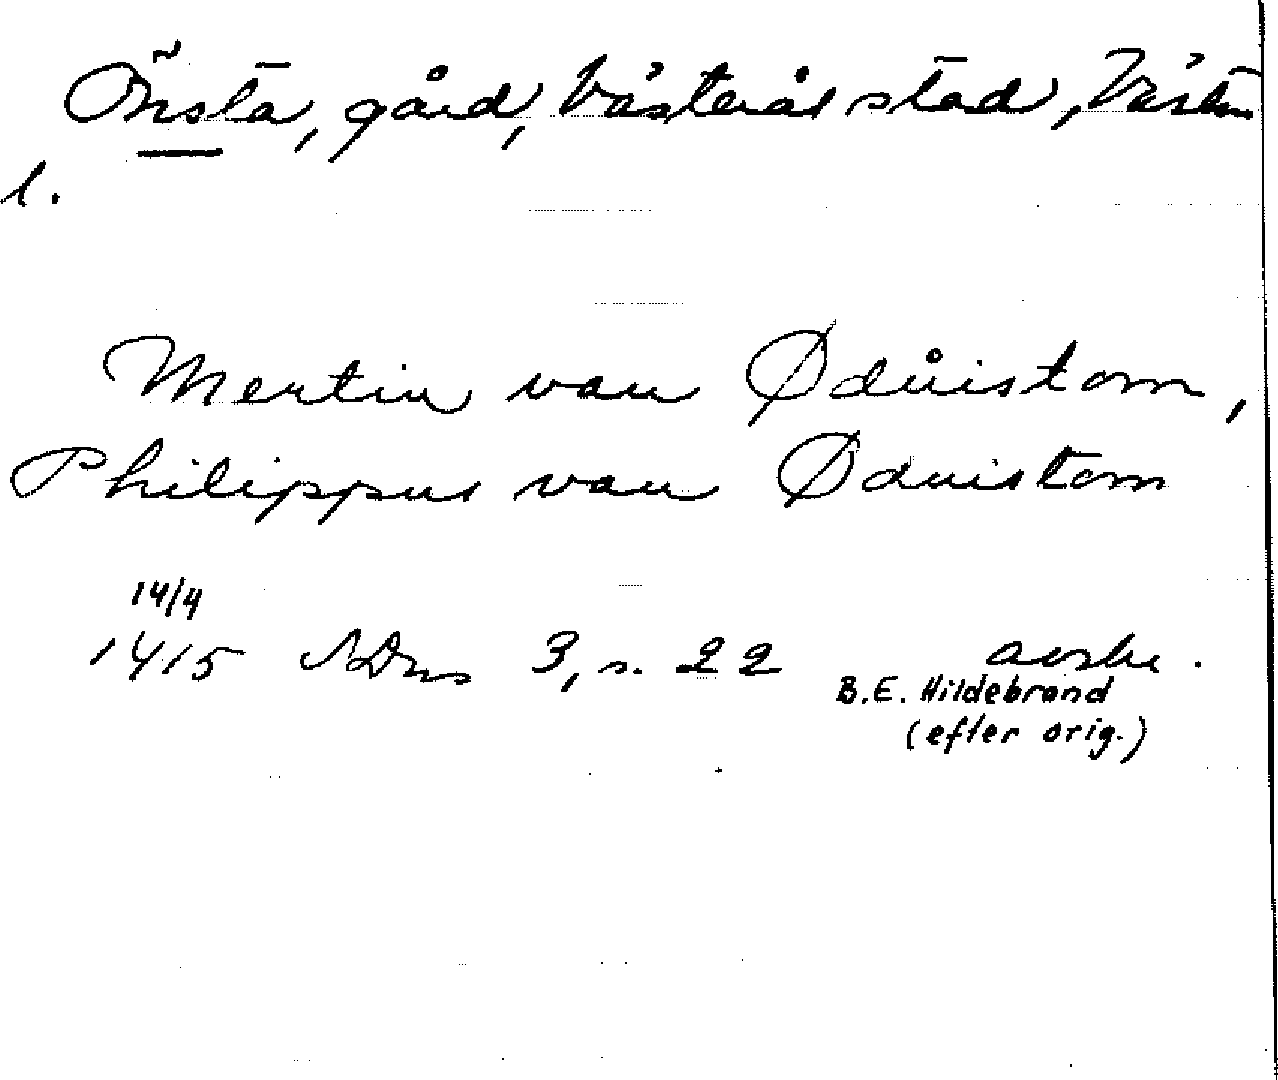 Önsta, gård, Västerås stad, Västm
l.
Mertin van Ødůistom,
Philippus van Øduistom
14/4
1415 NDns 3, s. 22 avskr.
B.E. Hildebrand
(efter orig.)